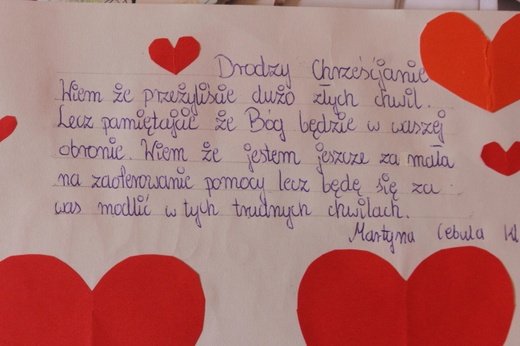 Drodzy Chrześcijanie
Wiem że przeżyliście dużo złych chwil.
Lecz pamiętajcie że Bóg będzie w waszej
obronie. Wiem że jestem jeszcze za mała
na zaoferowanie pomocy lecz będę się za
was modlić w tych trudnych chwilach.
Martyna Cebula Kl